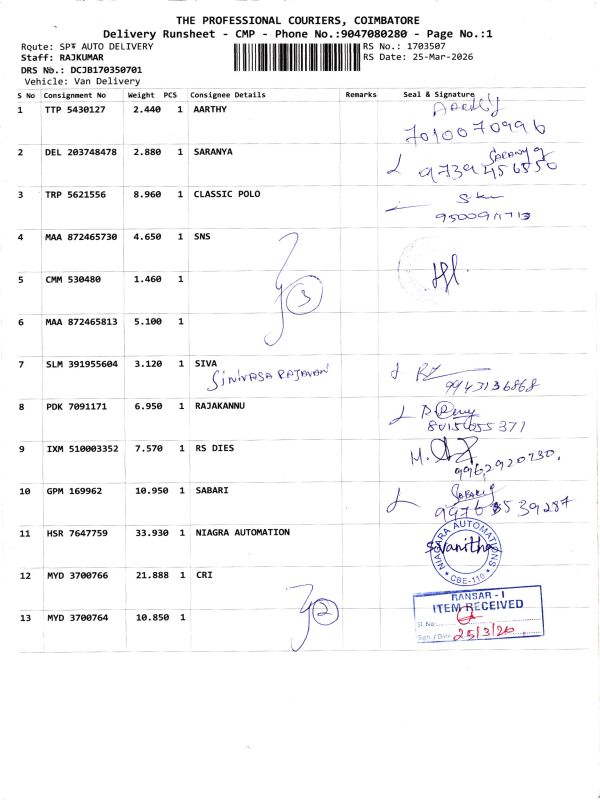 THE PROFESSIONAL COURIERS, COIMBATORE
Delivery Runsheet - CMP - Phone No.:9047080280 - Page No.:1
Route: SP* AUTO DELIVERY
RS No.: 1703507
Staff: RAJKUMAR
RS Date: 25-Mar-2026
DRS No.: DCJB170350701
Vehicle: Van Delivery
S No Consignment No Weight PCS Consignee Details Remarks Seal & Signature
1 TTP 5430127 2.440 1 AARTHY
7010070996
2 DEL 203748478 2.880 1 SARANYA
9739456550
3 TRP 5621556 8.960 1 CLASSIC POLO
4 MAA 872465730 4.650 1 SNS
5 CMM 530480 1.460 1
3
6 MAA 872465813 5.100 1
7 SLM 391955604 3.120 1 SIVA
SINIVASA RAJAVAN
9943136868
8 PDK 7091171 6.950 1 RAJAKANNU
9 IXM 510003352 7.570 1 RS DIES
9962920730.
10 GPM 169962 10.950 1 SABARI
11 HSR 7647759 33.930 1 NIAGRA AUTOMATION
NIAGARA AUTOMATIONS
CBE-110
12 MYD 3700766 21.888 1 CRI
2
RANSAR - I
ITEM RECEIVED
13 MYD 3700764 10.850 1
Sl. No:
Sign./Date 25/3/26